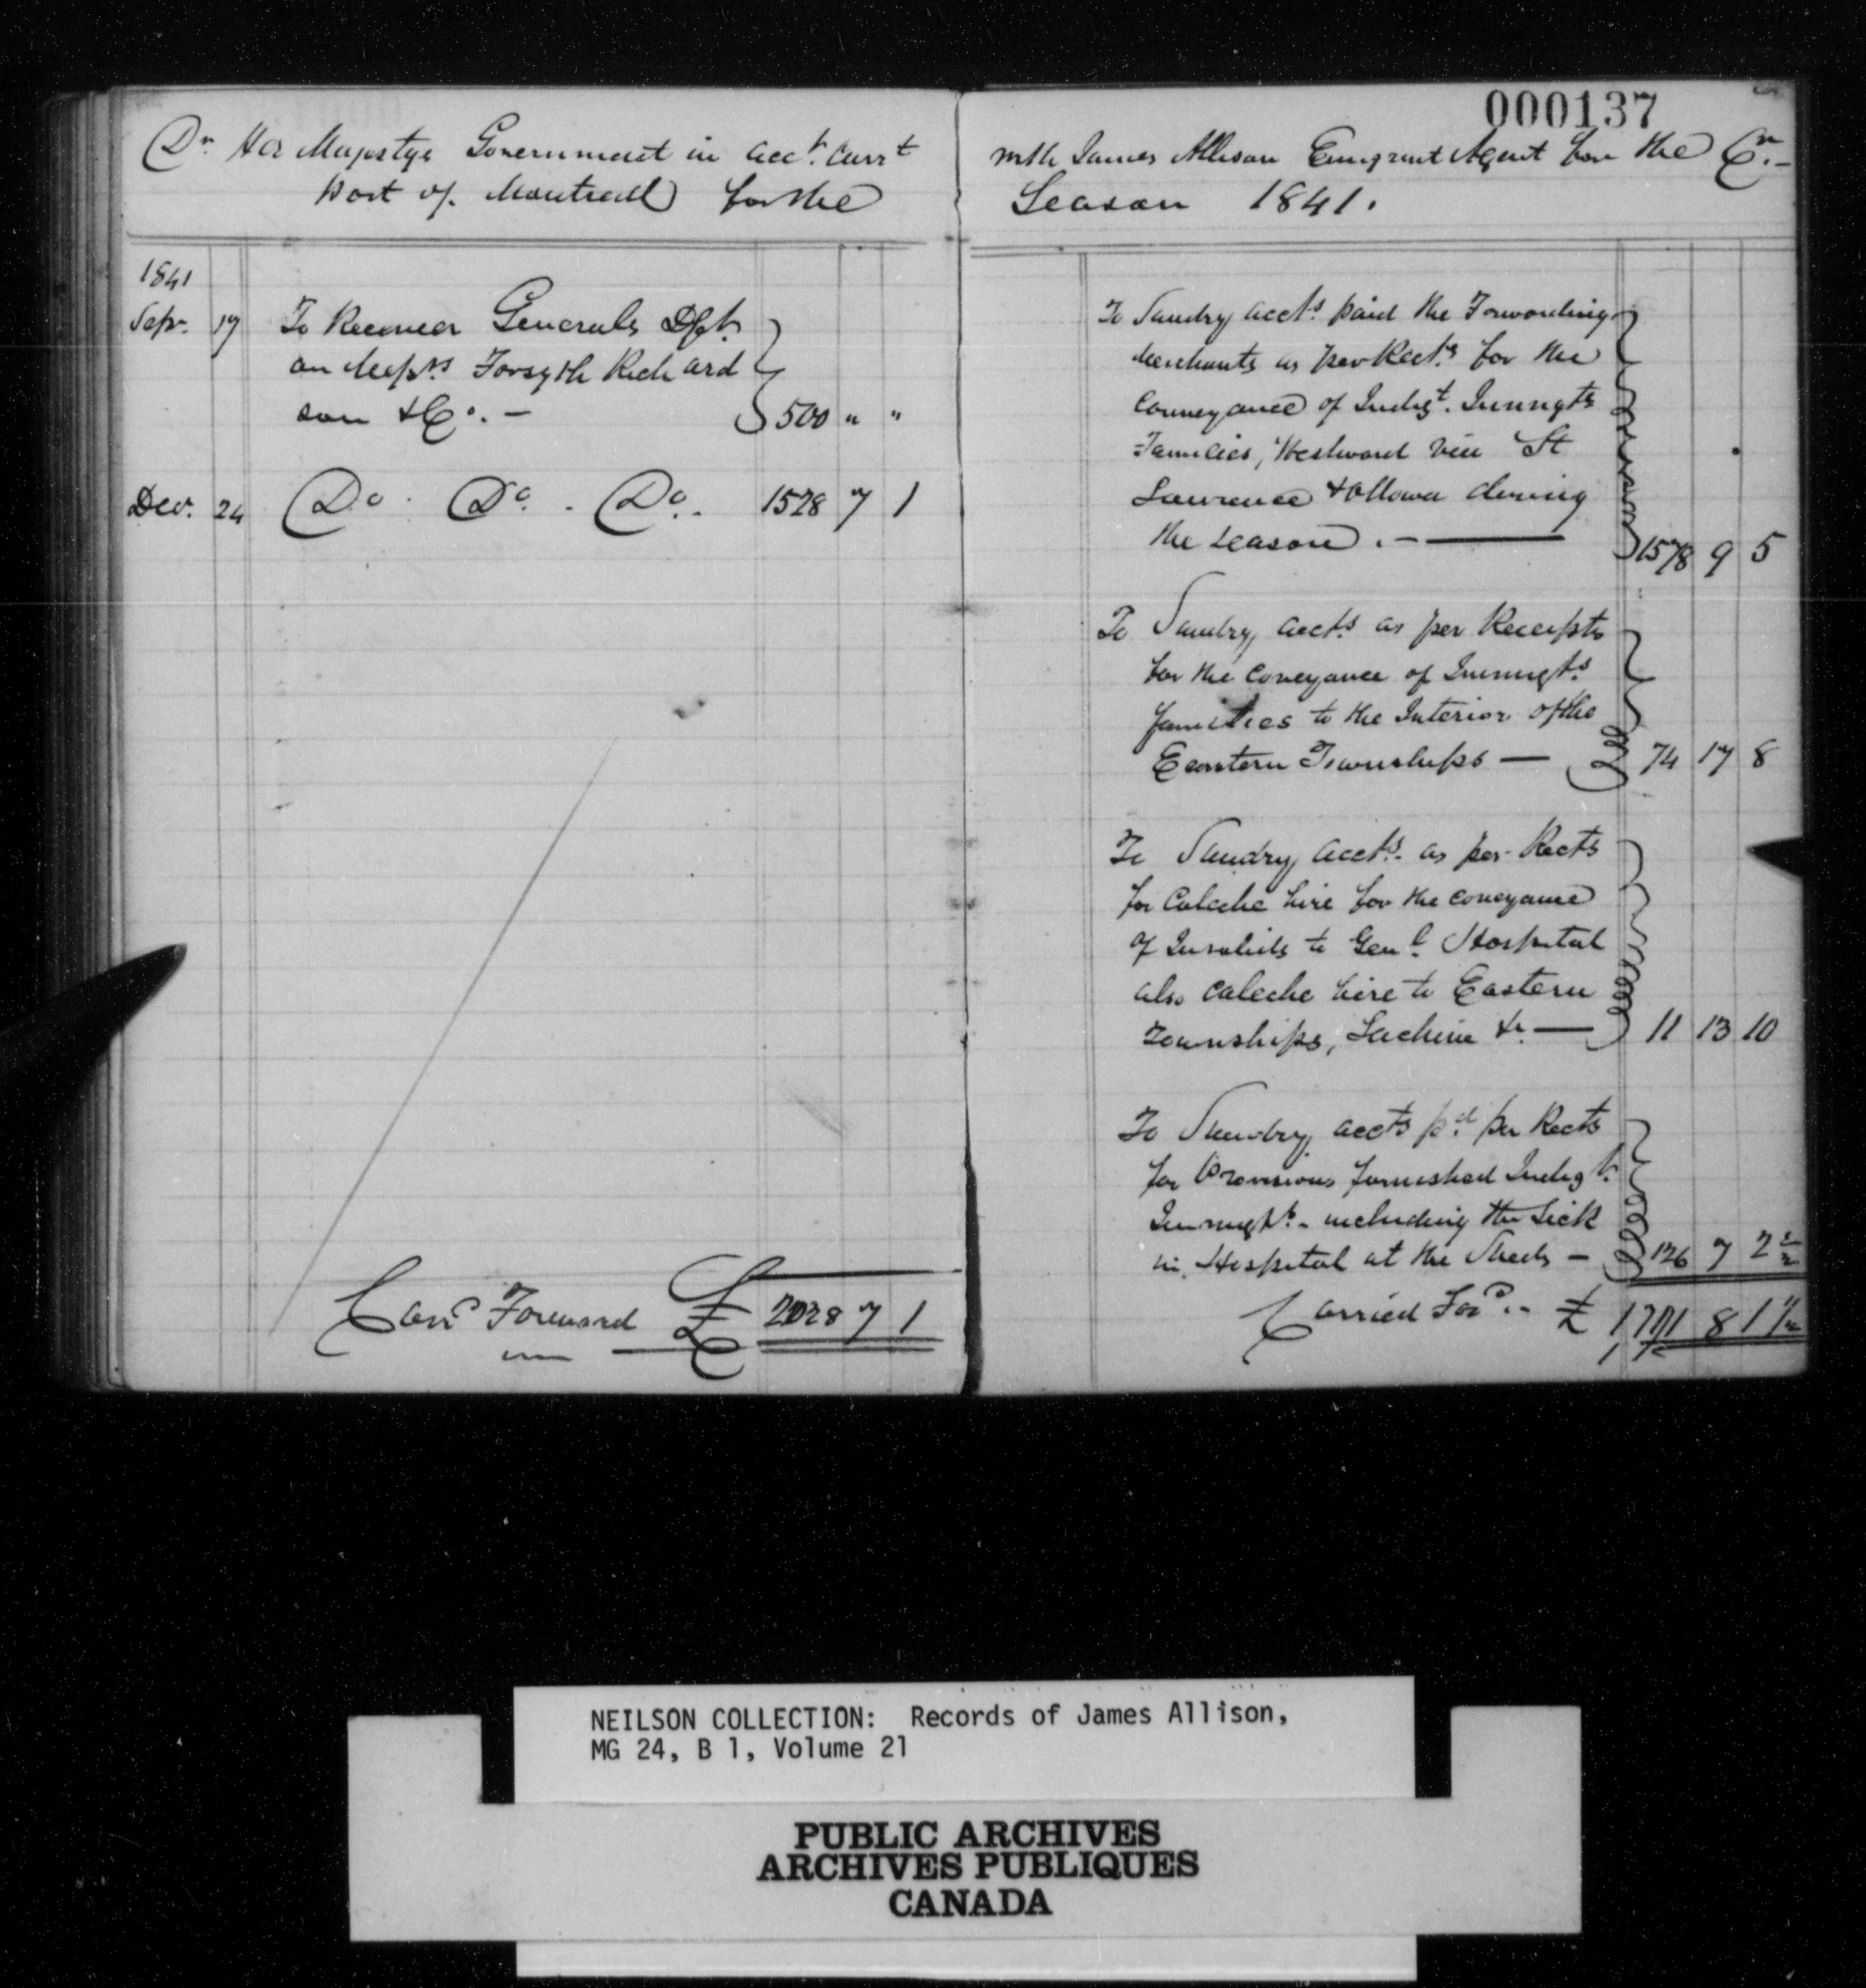 000137
Dr. Her Majestys Government in acct. Currt
Port of Montreal for the
1841
Sepr. 17 To Receiver Generals Dft.
on Messrs Forsyth Richard
son & Co. — 500 " "
Decr. 24 Do. Do. Do. 1528 7 1
Card Forward £ 2028 7 1
with James Allison Emigrant Agent for the Cr.
Season 1841.
To Sundry accts. paid the Forwarding
Merchants as per Rects. for the
Conveyance of Indigt. Immigts
Families, Westward via St
Lawrence & Ottowa during
the Season. — 1578 9 5
To Sundry accts. as per Receipts
for the Conveyance of Immigts.
families to the Interior of the
Eastern Townships — 74 17 8
To Sundry accts. as per Rects
for Caleche hire for the conveyance
of Invalids to Genl. Hospital
also Caleche hire to Eastern
Townships, Lachine &c. — 11 13 10
To Sundry accts pd. per Rects
for Provisions furnished Indigt.
Immigts. including the Sick
in Hospital at the Sheds — 126 7 2 1/2
Carried Ford. £ 1791 8 1 1/2
NEILSON COLLECTION: Records of James Allison,
MG 24, B 1, Volume 21
PUBLIC ARCHIVES
ARCHIVES PUBLIQUES
CANADA